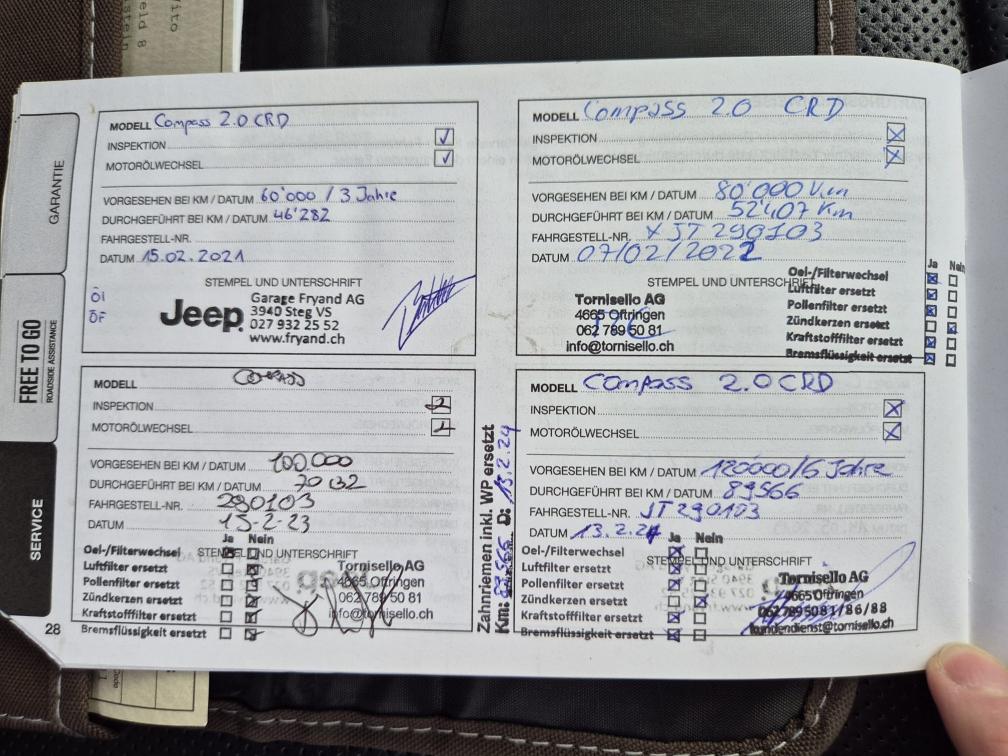 GARANTIE
FREE TO GO
ROADSIDE ASSISTANCE
SERVICE
28
MODELL Compass 2.0 CRD
INSPEKTION
MOTORÖLWECHSEL
VORGESEHEN BEI KM / DATUM 60'000 / 3 Jahre
DURCHGEFÜHRT BEI KM / DATUM 46'282
FAHRGESTELL-NR.
DATUM 15.02.2021
STEMPEL UND UNTERSCHRIFT
ÖF
Jeep
Garage Fryand AG
3940 Steg VS
027 932 25 52
www.fryand.ch
MODELL Compass 2.0 CRD
INSPEKTION
MOTORÖLWECHSEL
VORGESEHEN BEI KM / DATUM 80'000
DURCHGEFÜHRT BEI KM / DATUM 52'407 Km
FAHRGESTELL-NR. JT 290103
DATUM 07/02/2022
STEMPEL UND UNTERSCHRIFT
Tornisello AG
4665 Oftringen
062 789 50 81
info@tornisello.ch
Ja Nein
Oel-/Filterwechsel
Luftfilter ersetzt
Pollenfilter ersetzt
Zündkerzen ersetzt
Kraftstofffilter ersetzt
Bremsflüssigkeit ersetzt
MODELL Compass
INSPEKTION
MOTORÖLWECHSEL
VORGESEHEN BEI KM / DATUM 100.000
DURCHGEFÜHRT BEI KM / DATUM
FAHRGESTELL-NR. 290103
DATUM 15-2-23
STEMPEL UND UNTERSCHRIFT
Ja Nein
Oel-/Filterwechsel
Luftfilter ersetzt
Pollenfilter ersetzt
Zündkerzen ersetzt
Kraftstofffilter ersetzt
Bremsflüssigkeit ersetzt
Tornisello AG
4665 Oftringen
062 789 50 81
info@tornisello.ch
Zahnriemen inkl. WP ersetzt
Km: D: 13.2.24
MODELL Compass 2.0 CRD
INSPEKTION
MOTORÖLWECHSEL
VORGESEHEN BEI KM / DATUM 120000/6 Jahre
DURCHGEFÜHRT BEI KM / DATUM 89566
FAHRGESTELL-NR. JT290103
DATUM 13.2.24
STEMPEL UND UNTERSCHRIFT
Ja Nein
Oel-/Filterwechsel
Luftfilter ersetzt
Pollenfilter ersetzt
Zündkerzen ersetzt
Kraftstofffilter ersetzt
Bremsflüssigkeit ersetzt
Tornisello AG
4665 Oftringen
062 789 50 81/86/88
kundendienst@tornisello.ch